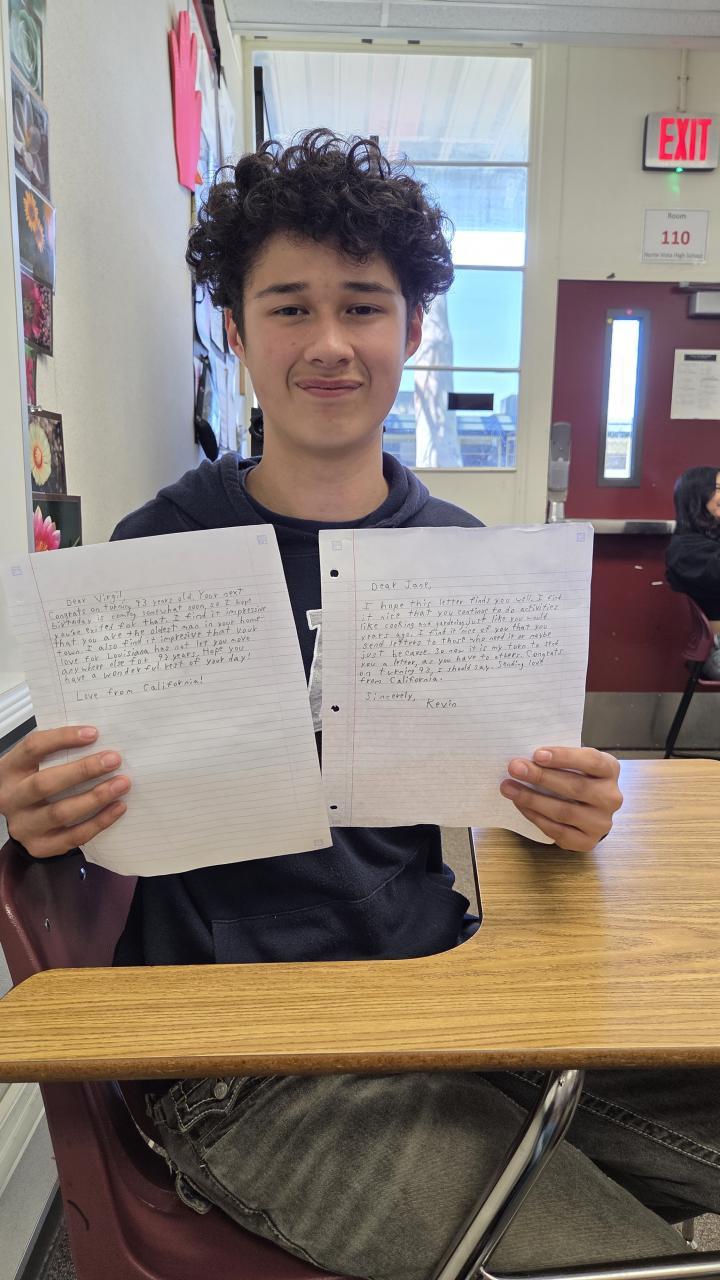 EXIT
Room
110
Norte Vista High School
Dear Virgil,
Congrats on turning 93 years old. Your next
birthday is coming somewhat soon, so I hope
you're excited for that. I find it impressive
that you are the oldest man in your home
town. I also find it impresive that your
love for Louisiana has not let you move
any where else for 93 years. Hope you
have a wonderful rest of your day!
Love from California!
Dear Jane,
I hope this letter finds you well. I find
it nice that you continue to do activities
like cooking and gardening just like you would
years ago. I find it nice of you that you
send letters to those who need it or maybe
just because. So now it is my turn to send
you a letter, as you have to others. Congrats
on turning 93, I should say. Sending love
from California.
Sincerely,
Kevin